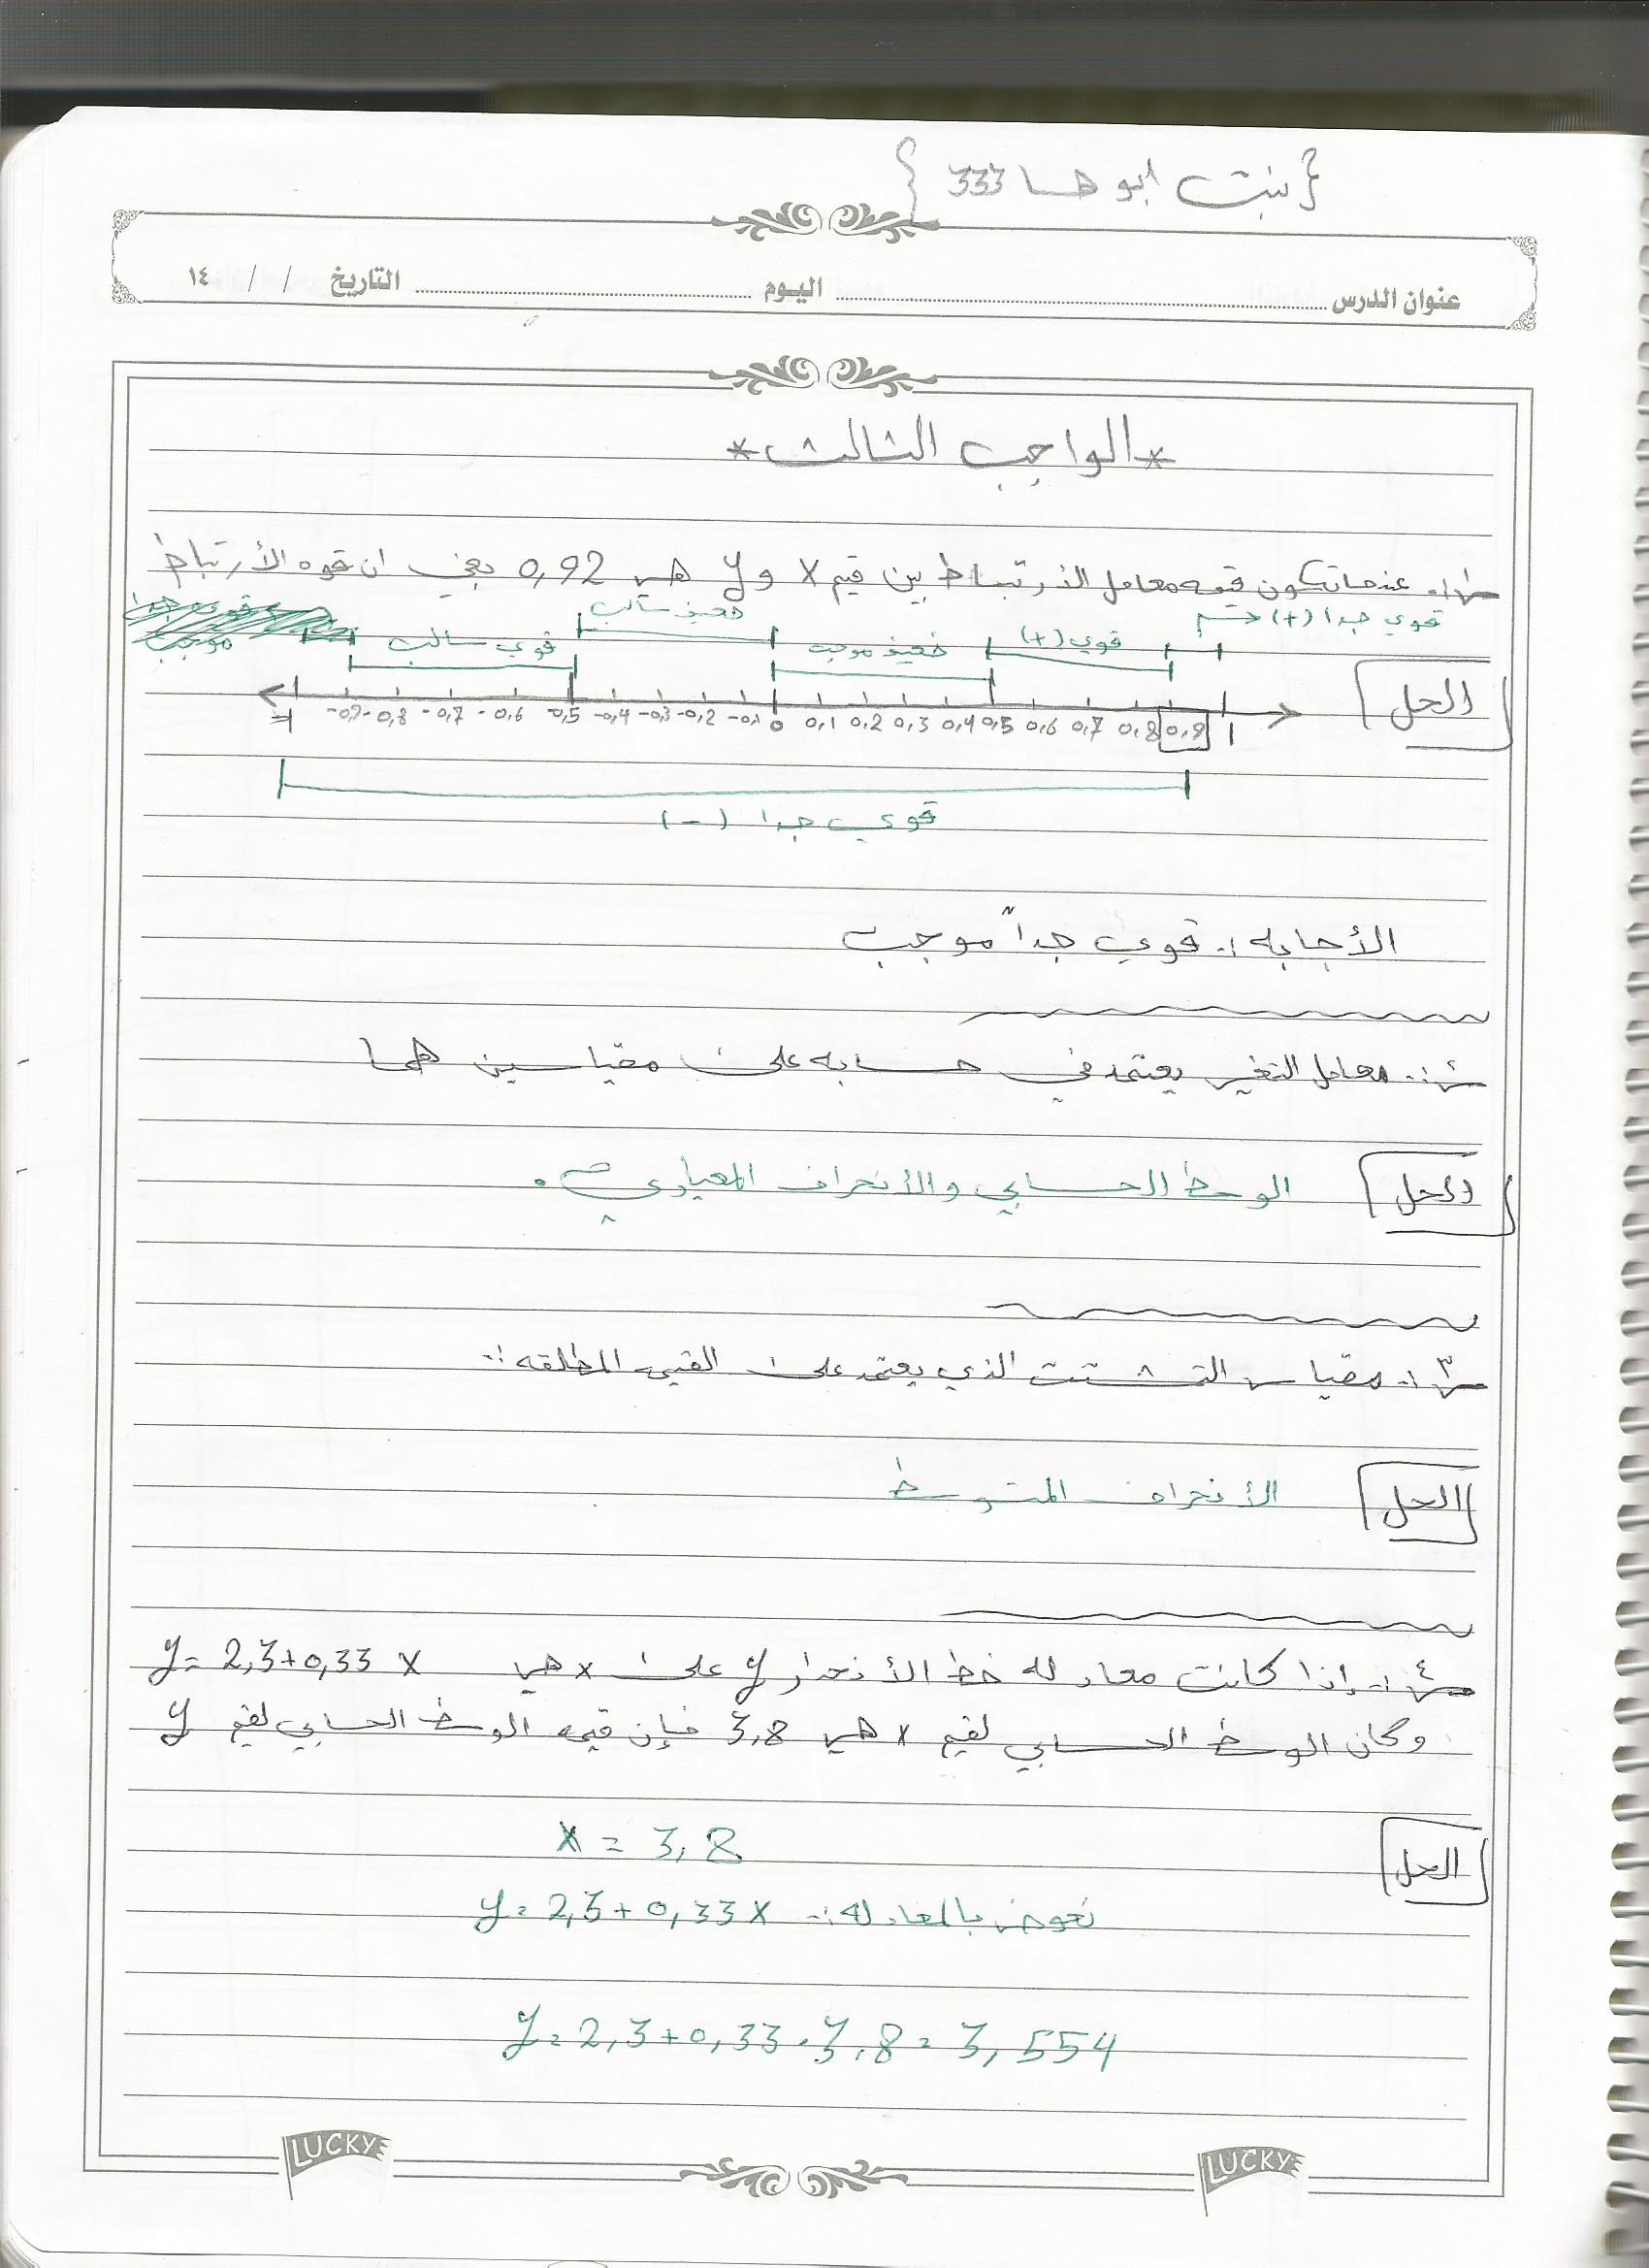 {بنت ابو حسا 333}
عنوان الدرس اليوم التاريخ / / ١٤
*الواجب الثالث*
س١:. عندما تكون قيمه معامل الارتباط بين قيم X و y هي 0,92 يعني ان قوه الأرتباط
قوي جدا (+)
قوي (+)
ضعيف موجب
ضعيف سالب
قوي سالب
الحل
-1 -0,9 -0,8 -0,7 -0,6 -0,5 -0,4 -0,3 -0,2 -0,1 0 0,1 0,2 0,3 0,4 0,5 0,6 0,7 0,8 0,9 1
قوي جدا (-)
الأجابه :. قوي جداً موجب
س٢:. معامل التغير يعتمد في حسابه على مقياسين هما
الحل
الوسط الحسابي والأنحراف المعياري .
س٣:. مقياس التشتت الذي يعتمد على القيمه المطلقه :.
الحل
الأنحراف المتوسط
س٤:. إذا كانت معادله خط الأنحدار y على x هي y= 2,3+0,33 X
وكان الوسط الحسابي لقيم x هي 3,8 فإن قيمه الوسط الحسابي لقيم y
الحل
X = 3,8
نعوض بالمعادله :. y= 2,3+ 0,33 X
y= 2,3+0,33.3,8= 3,554
LUCKY LUCKY